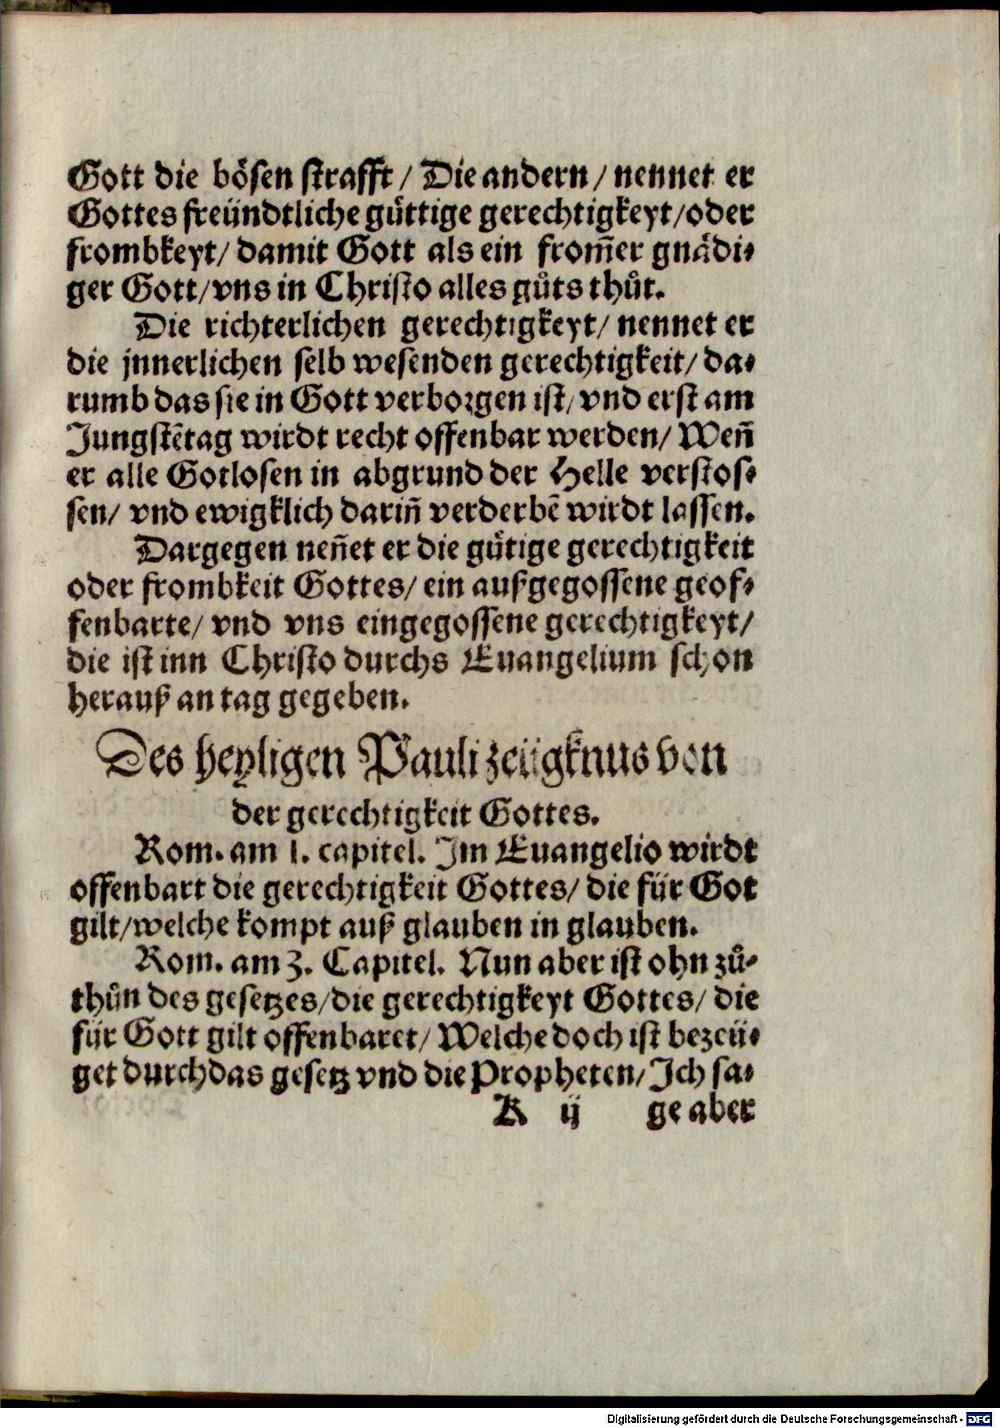 Gott die bösen strafft / Die andern / nennet er
Gottes freündtliche gůttige gerechtigkeyt / oder
frombkeyt / damit Gott als ein from̃er gnådi⸗
ger Gott / vns in Christo alles gůts thůt.
Die richterlichen gerechtigkeyt / nennet er
die jnnerlichen selb wesenden gerechtigkeit / da⸗
rumb das sie in Gott verborgen ist / vnd erst am
Jungstẽtag wirdt recht offenbar werden / Weñ
er alle Gotlosen in abgrund der Helle verstos⸗
sen / vnd ewigklich dariñ verderbẽ wirdt lassen.
Dargegen neñet er die gůtige gerechtigkeit
oder frombkeit Gottes / ein außgegossene geof⸗
fenbarte / vnd vns eingegossene gerechtigkeyt /
die ist inn Christo durchs Euangelium schon
herauß an tag gegeben.
Des heyligen Pauli zeügknus von
der gerechtigkeit Gottes.
Rom. am 1. capitel. Im Euangelio wirdt
offenbart die gerechtigkeit Gottes / die für Got
gilt / welche kompt auß glauben in glauben.
Rom. am 3. Capitel. Nun aber ist ohn zů⸗
thůn des gesetzes / die gerechtigkeyt Gottes / die
für Gott gilt offenbaret / Welche doch ist bezeü⸗
get durch das gesetz vnd die Propheten / Ich sa⸗
K ij ge aber
Digitalisierung gefördert durch die Deutsche Forschungsgemeinschaft - DFG